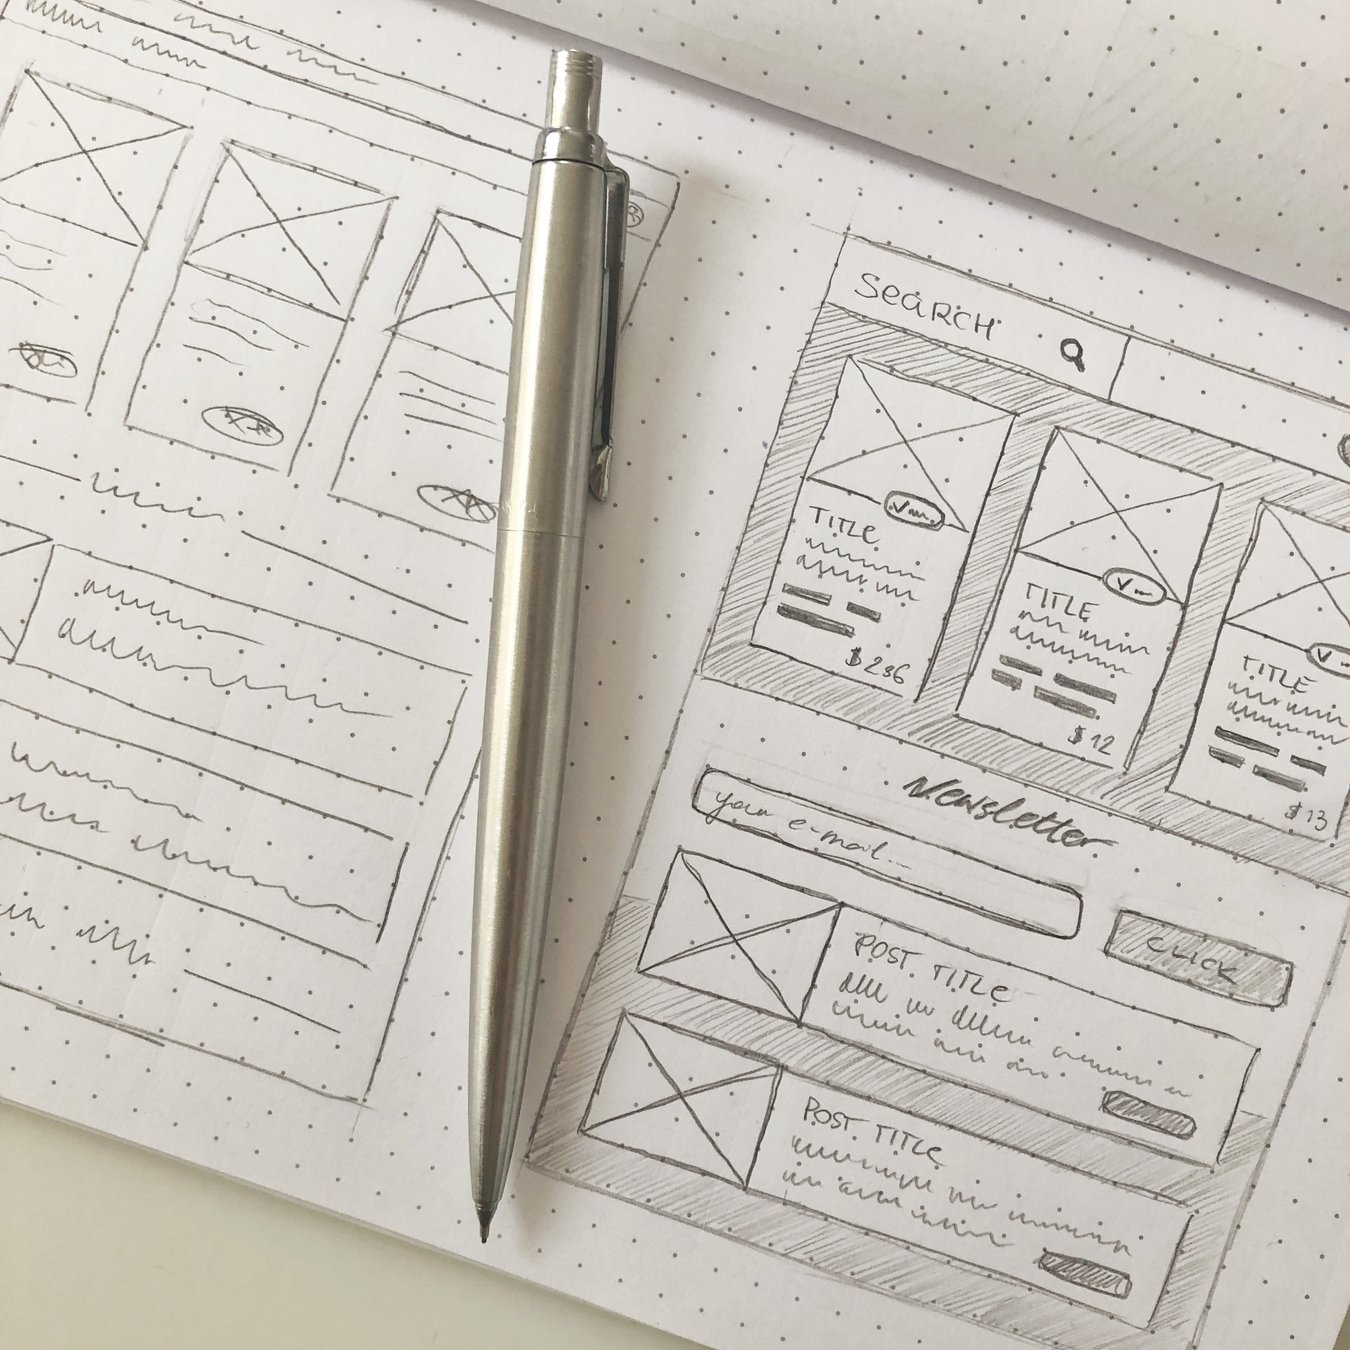 SEARCH
TITLE
$236
TITLE
$12
TITLE
$13
Newsletter
your e-mail...
CLICK
POST TITLE
POST TITLE